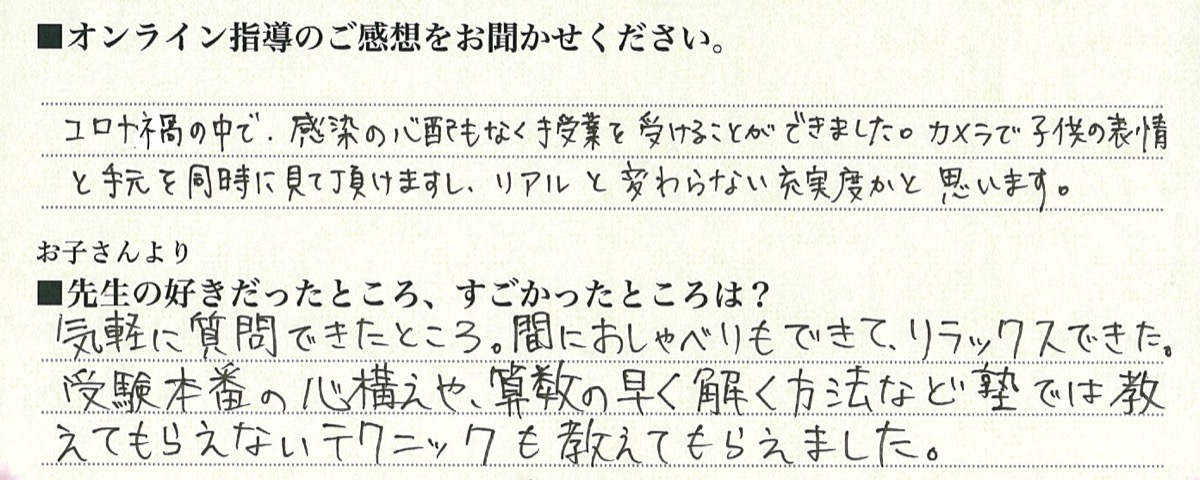 ■オンライン指導のご感想をお聞かせください。
コロナ禍の中で、感染の心配もなく授業を受けることができました。カメラで子供の表情
と手元を同時に見て頂けますし、リアルと変わらない充実度かと思います。
お子さんより
■先生の好きだったところ、すごかったところは？
気軽に質問できたところ。間におしゃべりもできて、リラックスできた。
受験本番の心構えや、算数の早く解く方法など塾では教
えてもらえないテクニックも教えてもらえました。